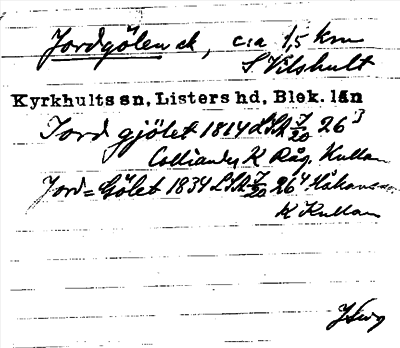 Jordgölen ek, c:a 1,5 km
S Vilshult
Kyrkhults sn, Listers hd, Blek. län
Jord gjölet 1814 LSA J/20 26³
K Råg. Kullan
Jord=Gölet 1834 LSA J/20 26⁴ Håkans
K Kullan